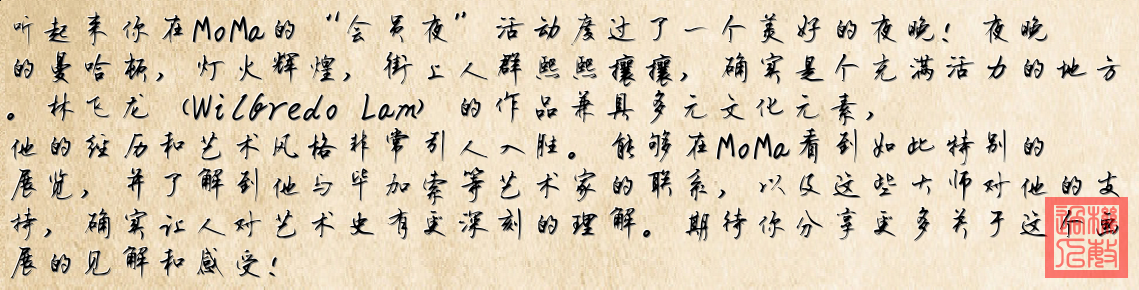 听起来你在MoMa的“会员夜”活动度过了一个美好的夜晚！夜晚
的曼哈顿，灯火辉煌，街上人群熙熙攘攘，确实是个充满活力的地方
。林飞龙（Wilfredo Lam）的作品兼具多元文化元素，
他的经历和艺术风格非常引人入胜。能够在MoMa看到如此特别的
展览，并了解到他与毕加索等艺术家的联系，以及这些大师对他的支
持，确实让人对艺术史有更深刻的理解。期待你分享更多关于这个画
展的见解和感受！